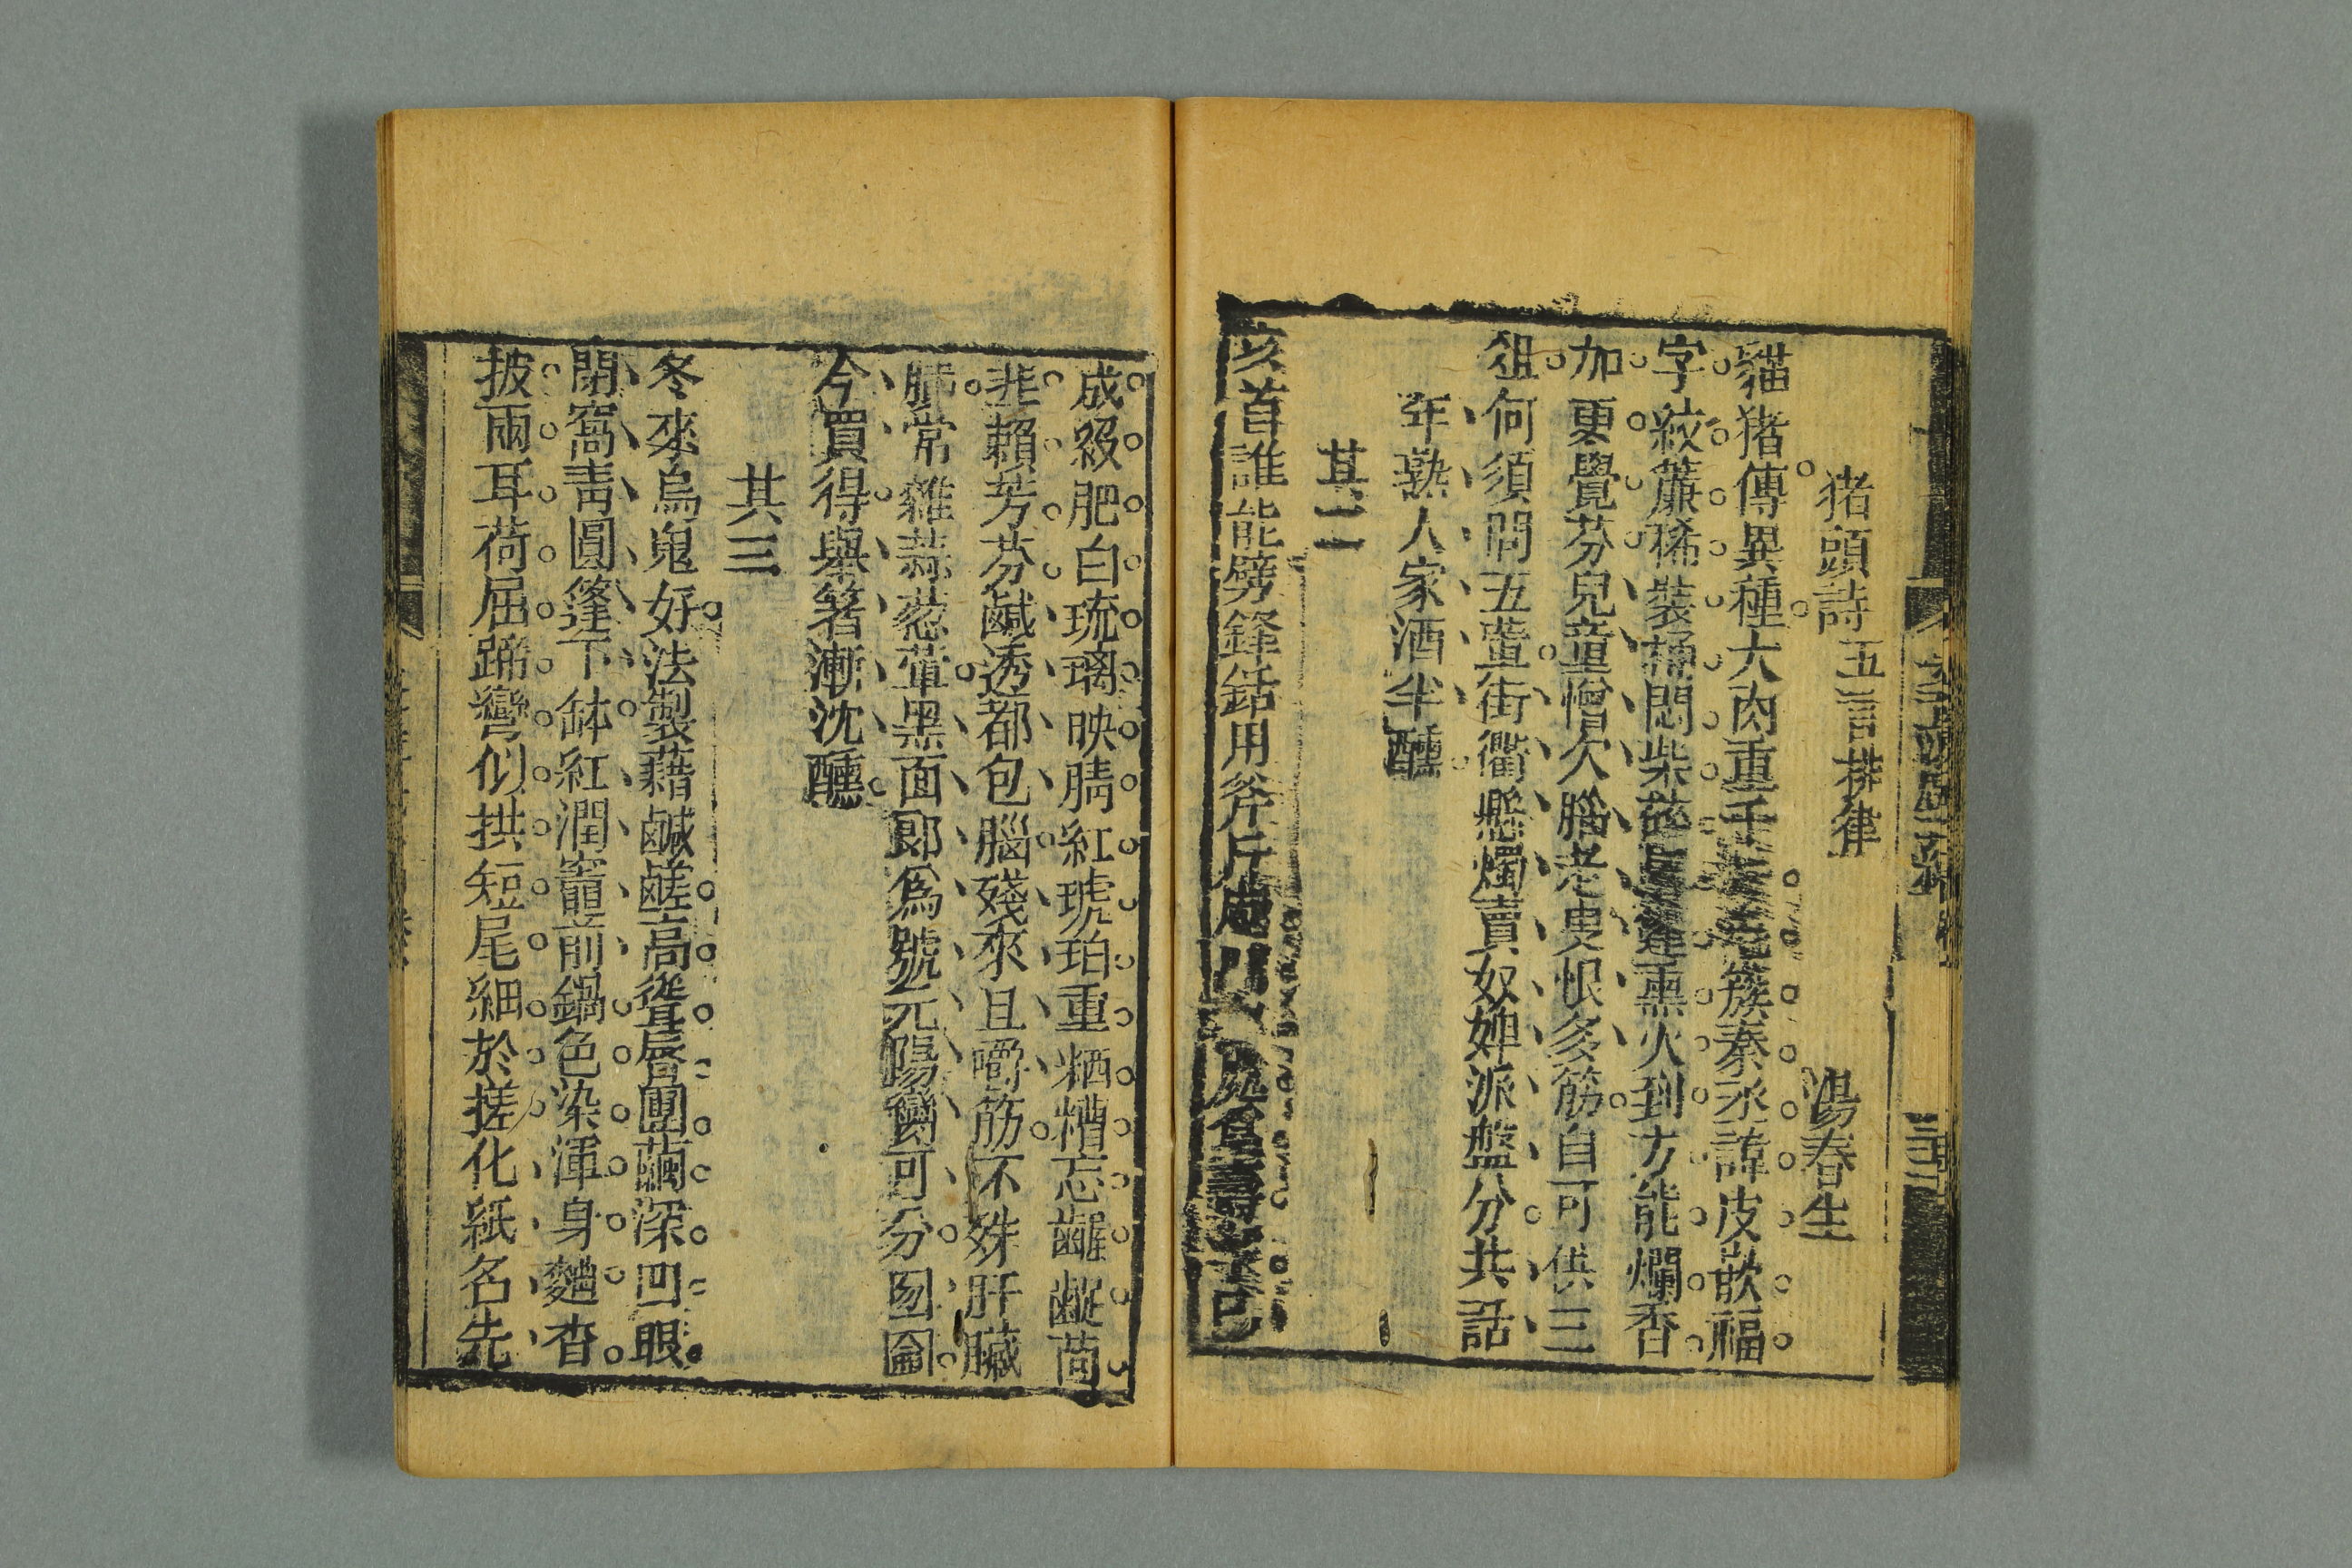 猪頭詩 五言排律 湯春生
貓猪傳異種大肉重千簇秦丞諱皮嵌福
字紋簾稀裝桶悶柴薰火到方能爛香
加更覺芬兒童憎欠腦老叟恨多筋自可供三
俎何須問五葷街衢懸燭賣奴婢派盤分共話
年熟人家酒半醺
其二
亥首誰能劈鋒銛用斧斤
成綴肥白琉璃映腈紅琥珀重粞糟忘齷齪茼
韭賴芳芬鹹透都包腦殘來且嚼筋不殊肝臟
肺常雜蒜葱葷黑面郎爲號元陽臠可分囫圇
今買得舉箸漸沈醺
其三
冬來烏鬼好法製藉鹹鹺高聳唇團繭深凹眼
閉窩靑圓篷下缽紅潤竈前鍋色染渾身麯杳
披兩耳荷屈蹄彎似拱短尾細於搓化紙名先